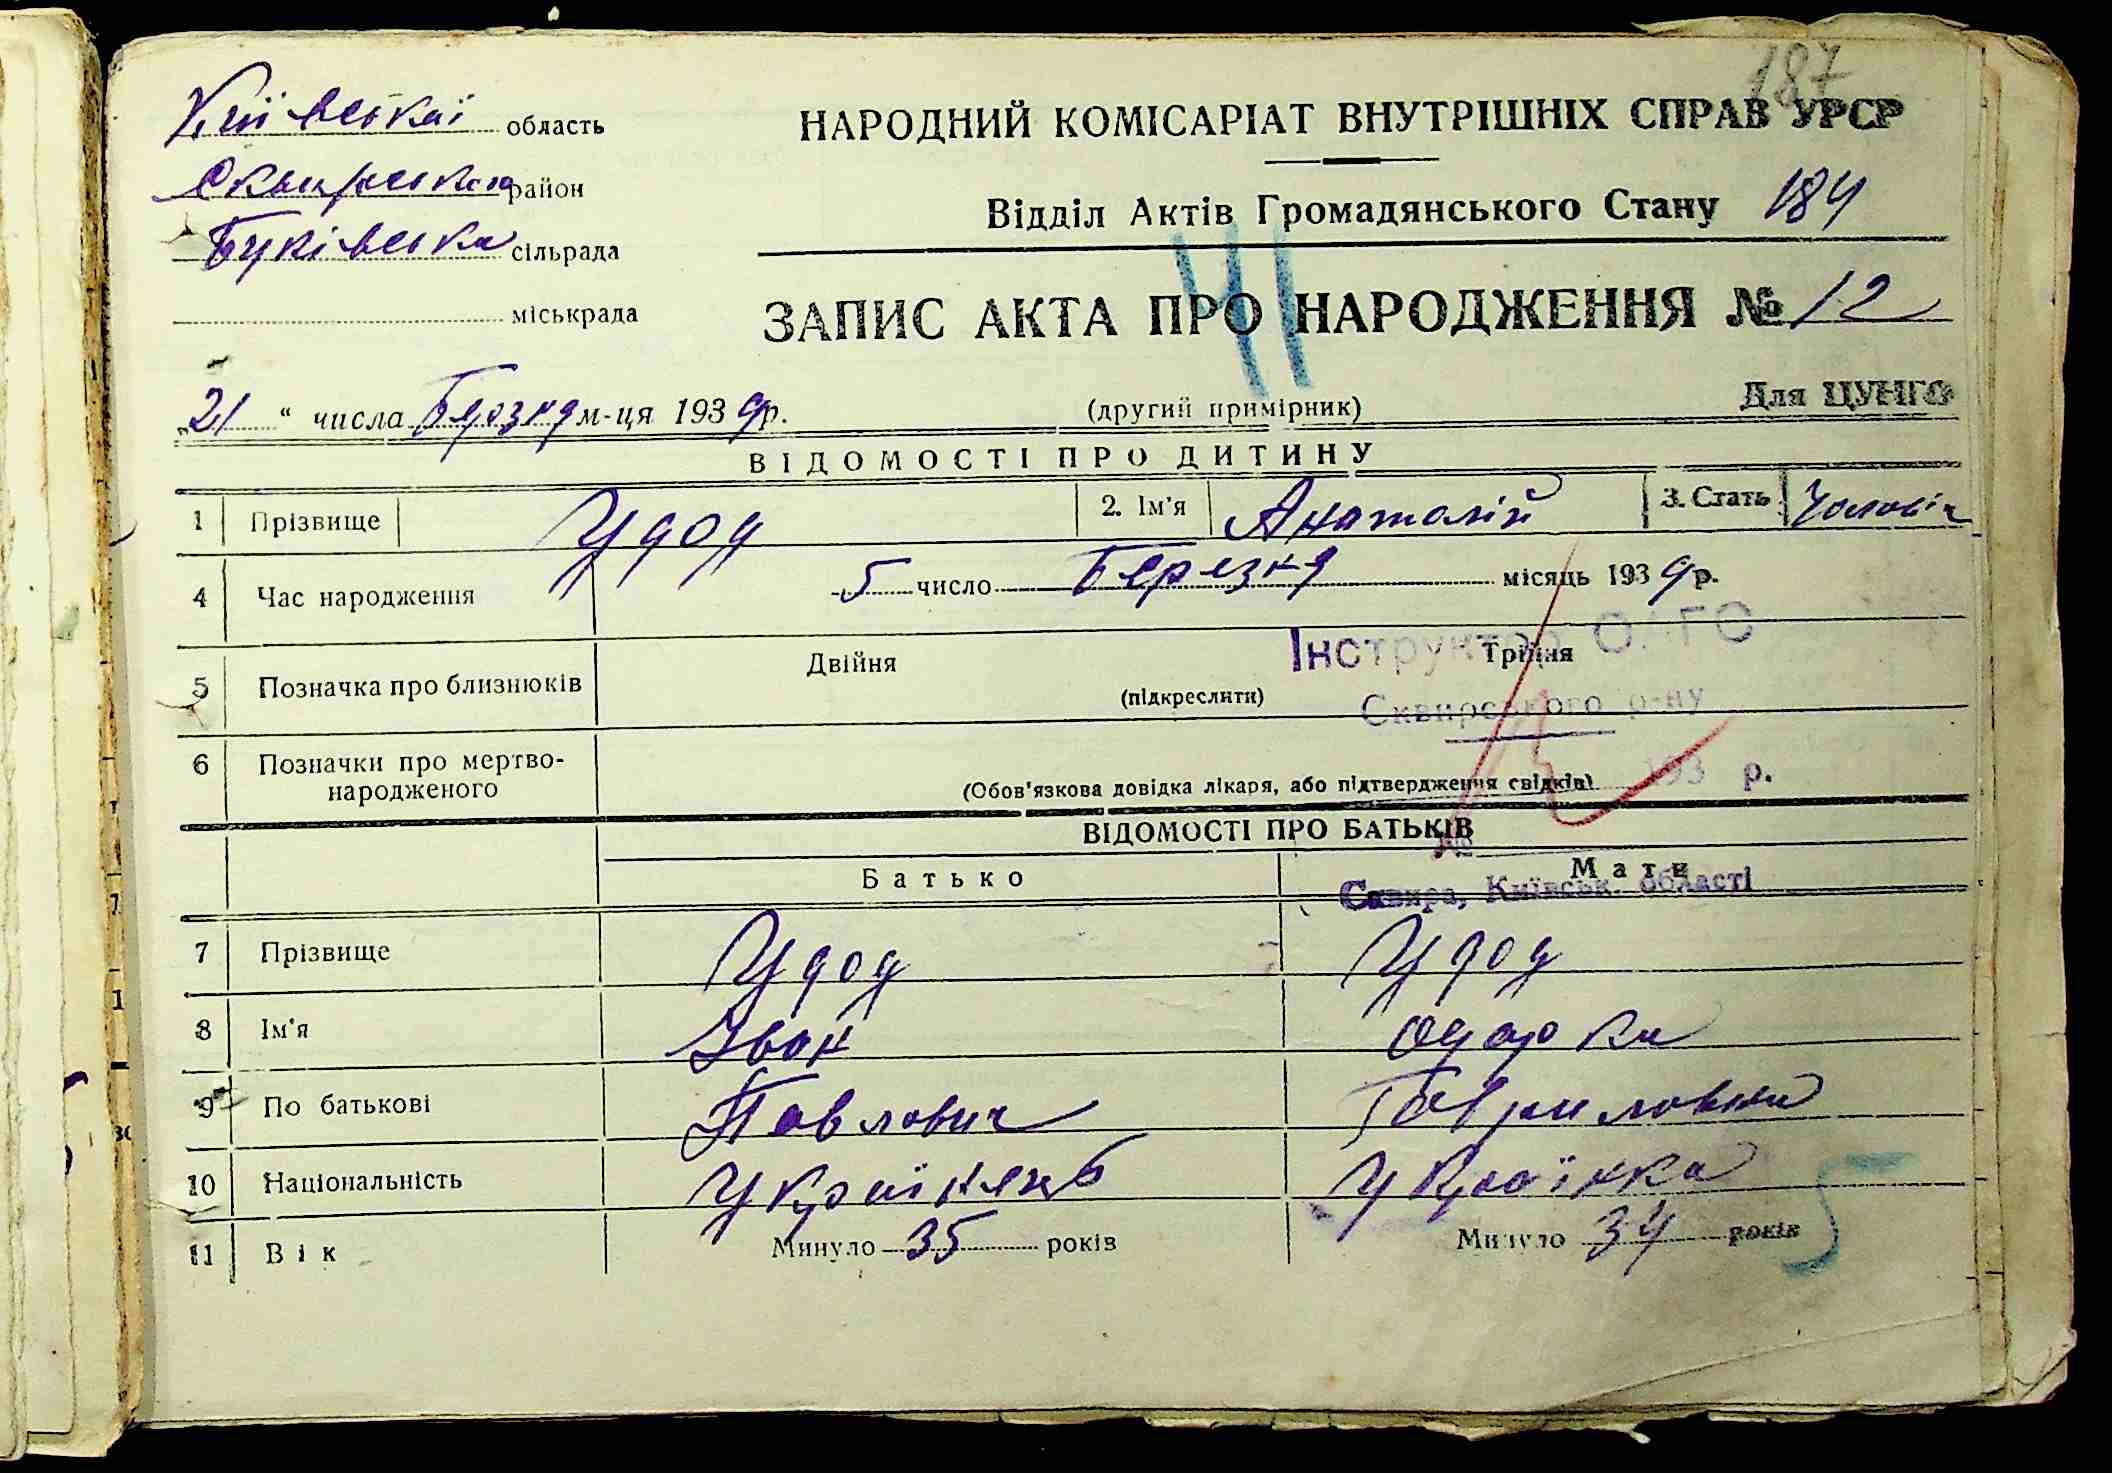 187
Київської область
НАРОДНИЙ КОМІСАРІАТ ВНУТРІШНІХ СПРАВ УРСР
Сквирського район
Відділ Актів Громадянського Стану 184
Буківська сільрада
41
міськрада
ЗАПИС АКТА ПРО НАРОДЖЕННЯ № 12
„21“ числа Березня м-ця 1939 р. (другий примірник) Для ЦУНГО
ВІДОМОСТІ ПРО ДИТИНУ
1 Прізвище Удод 2. Ім'я Анатолій 3. Стать Чоловіч
4 Час народження 5 число Березня місяць 1939 р.
Інструктор ОАГС
5 Позначка про близнюків Двійня (підкреслити) Трійня
Сквирського р-ну
6 Позначки про мертво-
народженого (Обов'язкова довідка лікаря, або підтвердження свідків)
193 р.
ВІДОМОСТІ ПРО БАТЬКІВ
Батько Мати
Сквира, Київськ. області
7 Прізвище Удод Удод
8 Ім'я Іван Одарка
9 По батькові Павлович Гавриловна
10 Національність Українець Українка
11 Вік Минуло 35 років Минуло 34 років
5